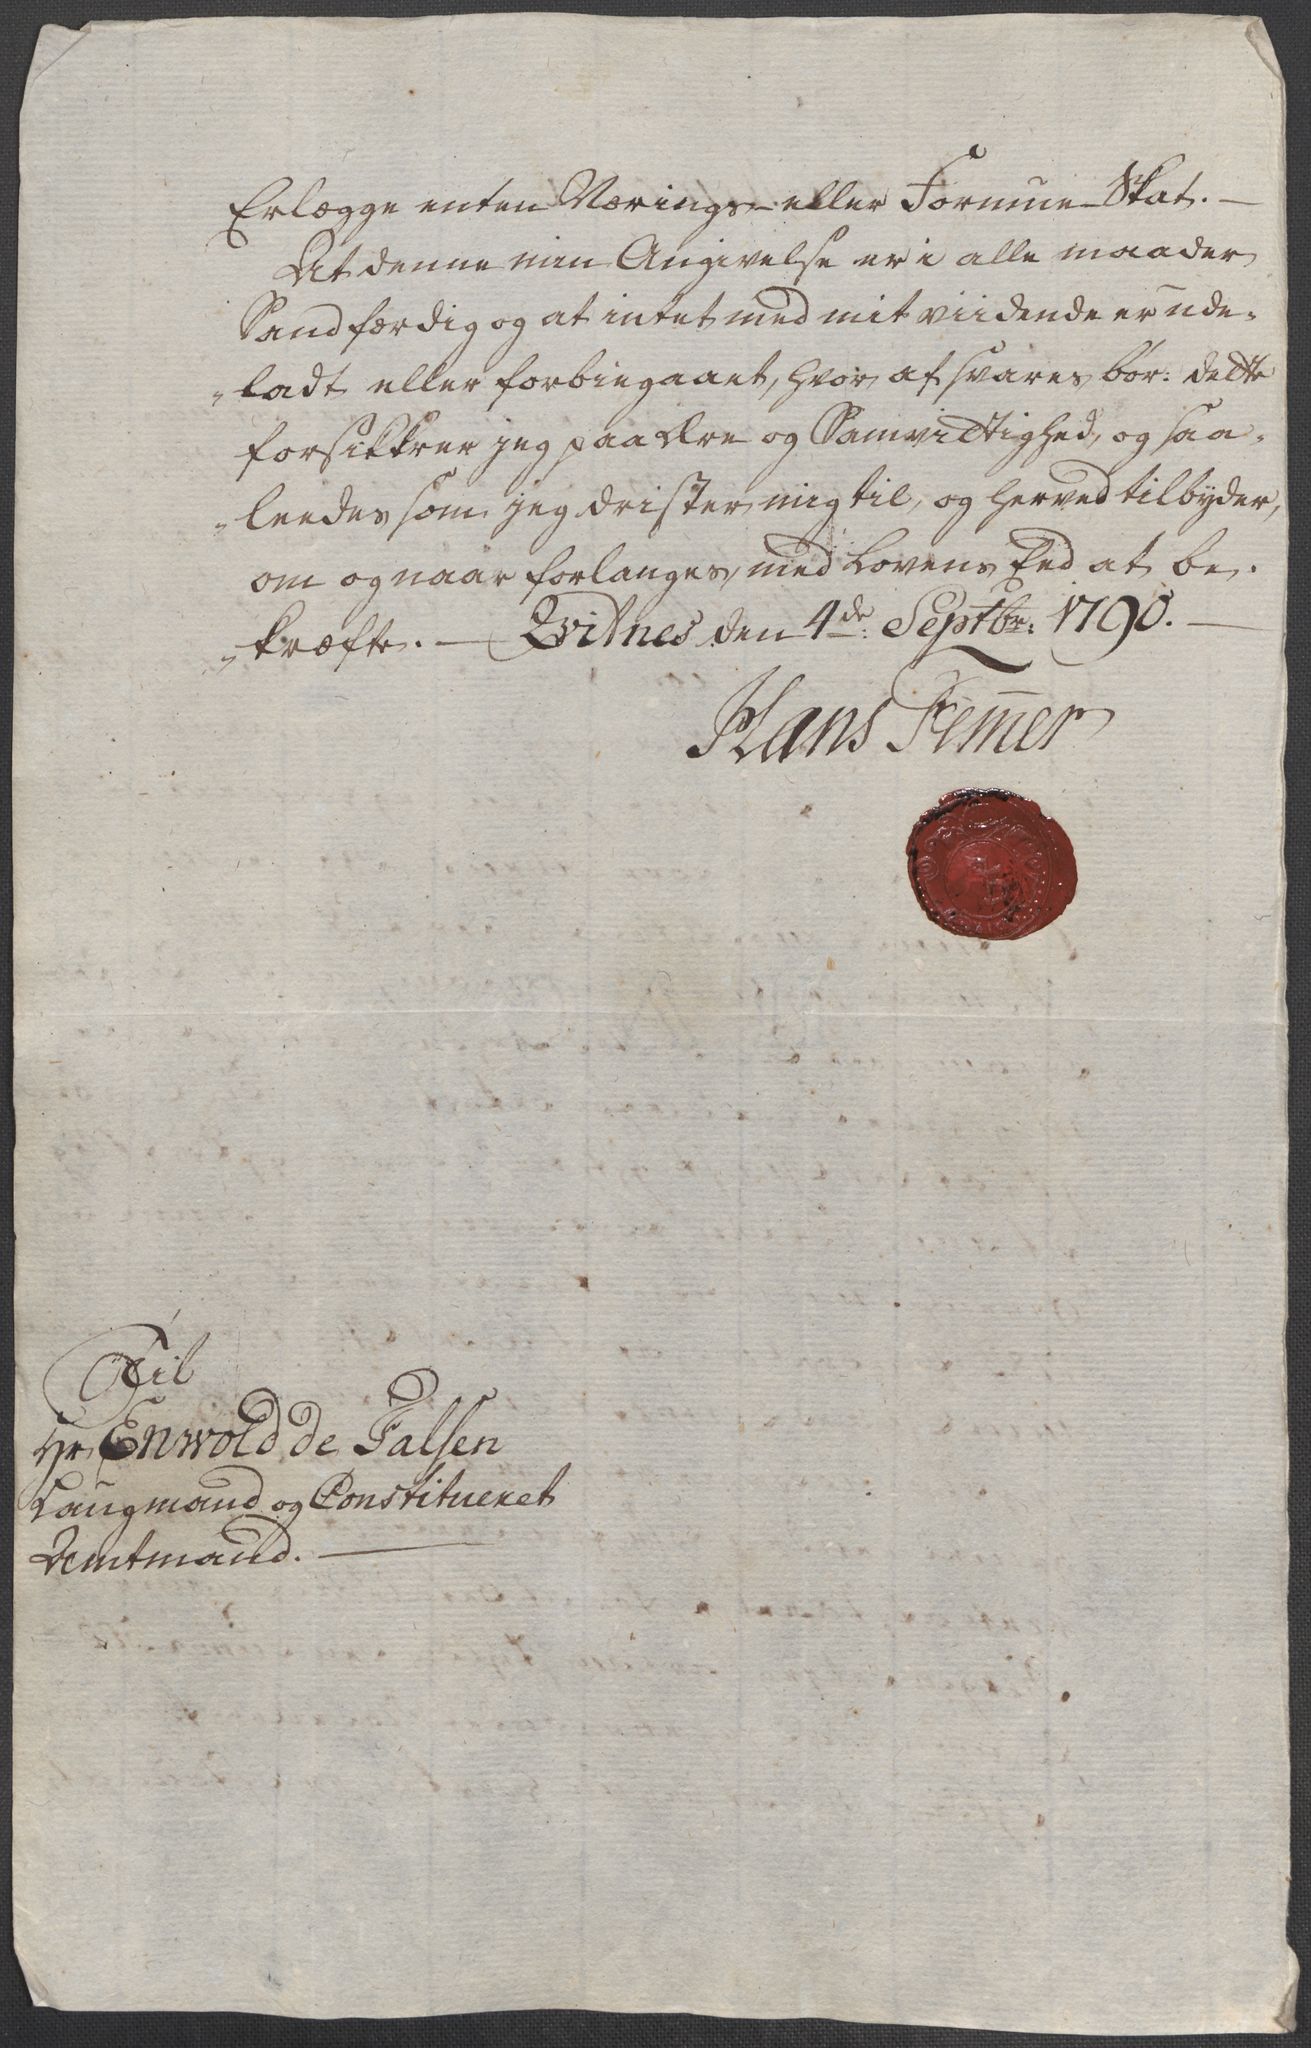 Erlægge enten Nærings- eller Formue-Skat. —
At denne min Angivelse er i alle maader
Sandfærdig og at intet med mit viidende er ude„
„ladt eller forbiegaaet, hvor af svares bør: dette
forsikkrer jeg paa Ære og Samvidtighed, og saa„
„leedes som jeg drister mig til, og herved tilbyder,
om og naar forlanges, med Lovens Eed at be„
„kræfte. — Qvitnes den 4de: Septbr: 1790. —
Hans Femer
Til
Hr Enwold de Falsen
Laugmand og Constitueret
Amtmand. —